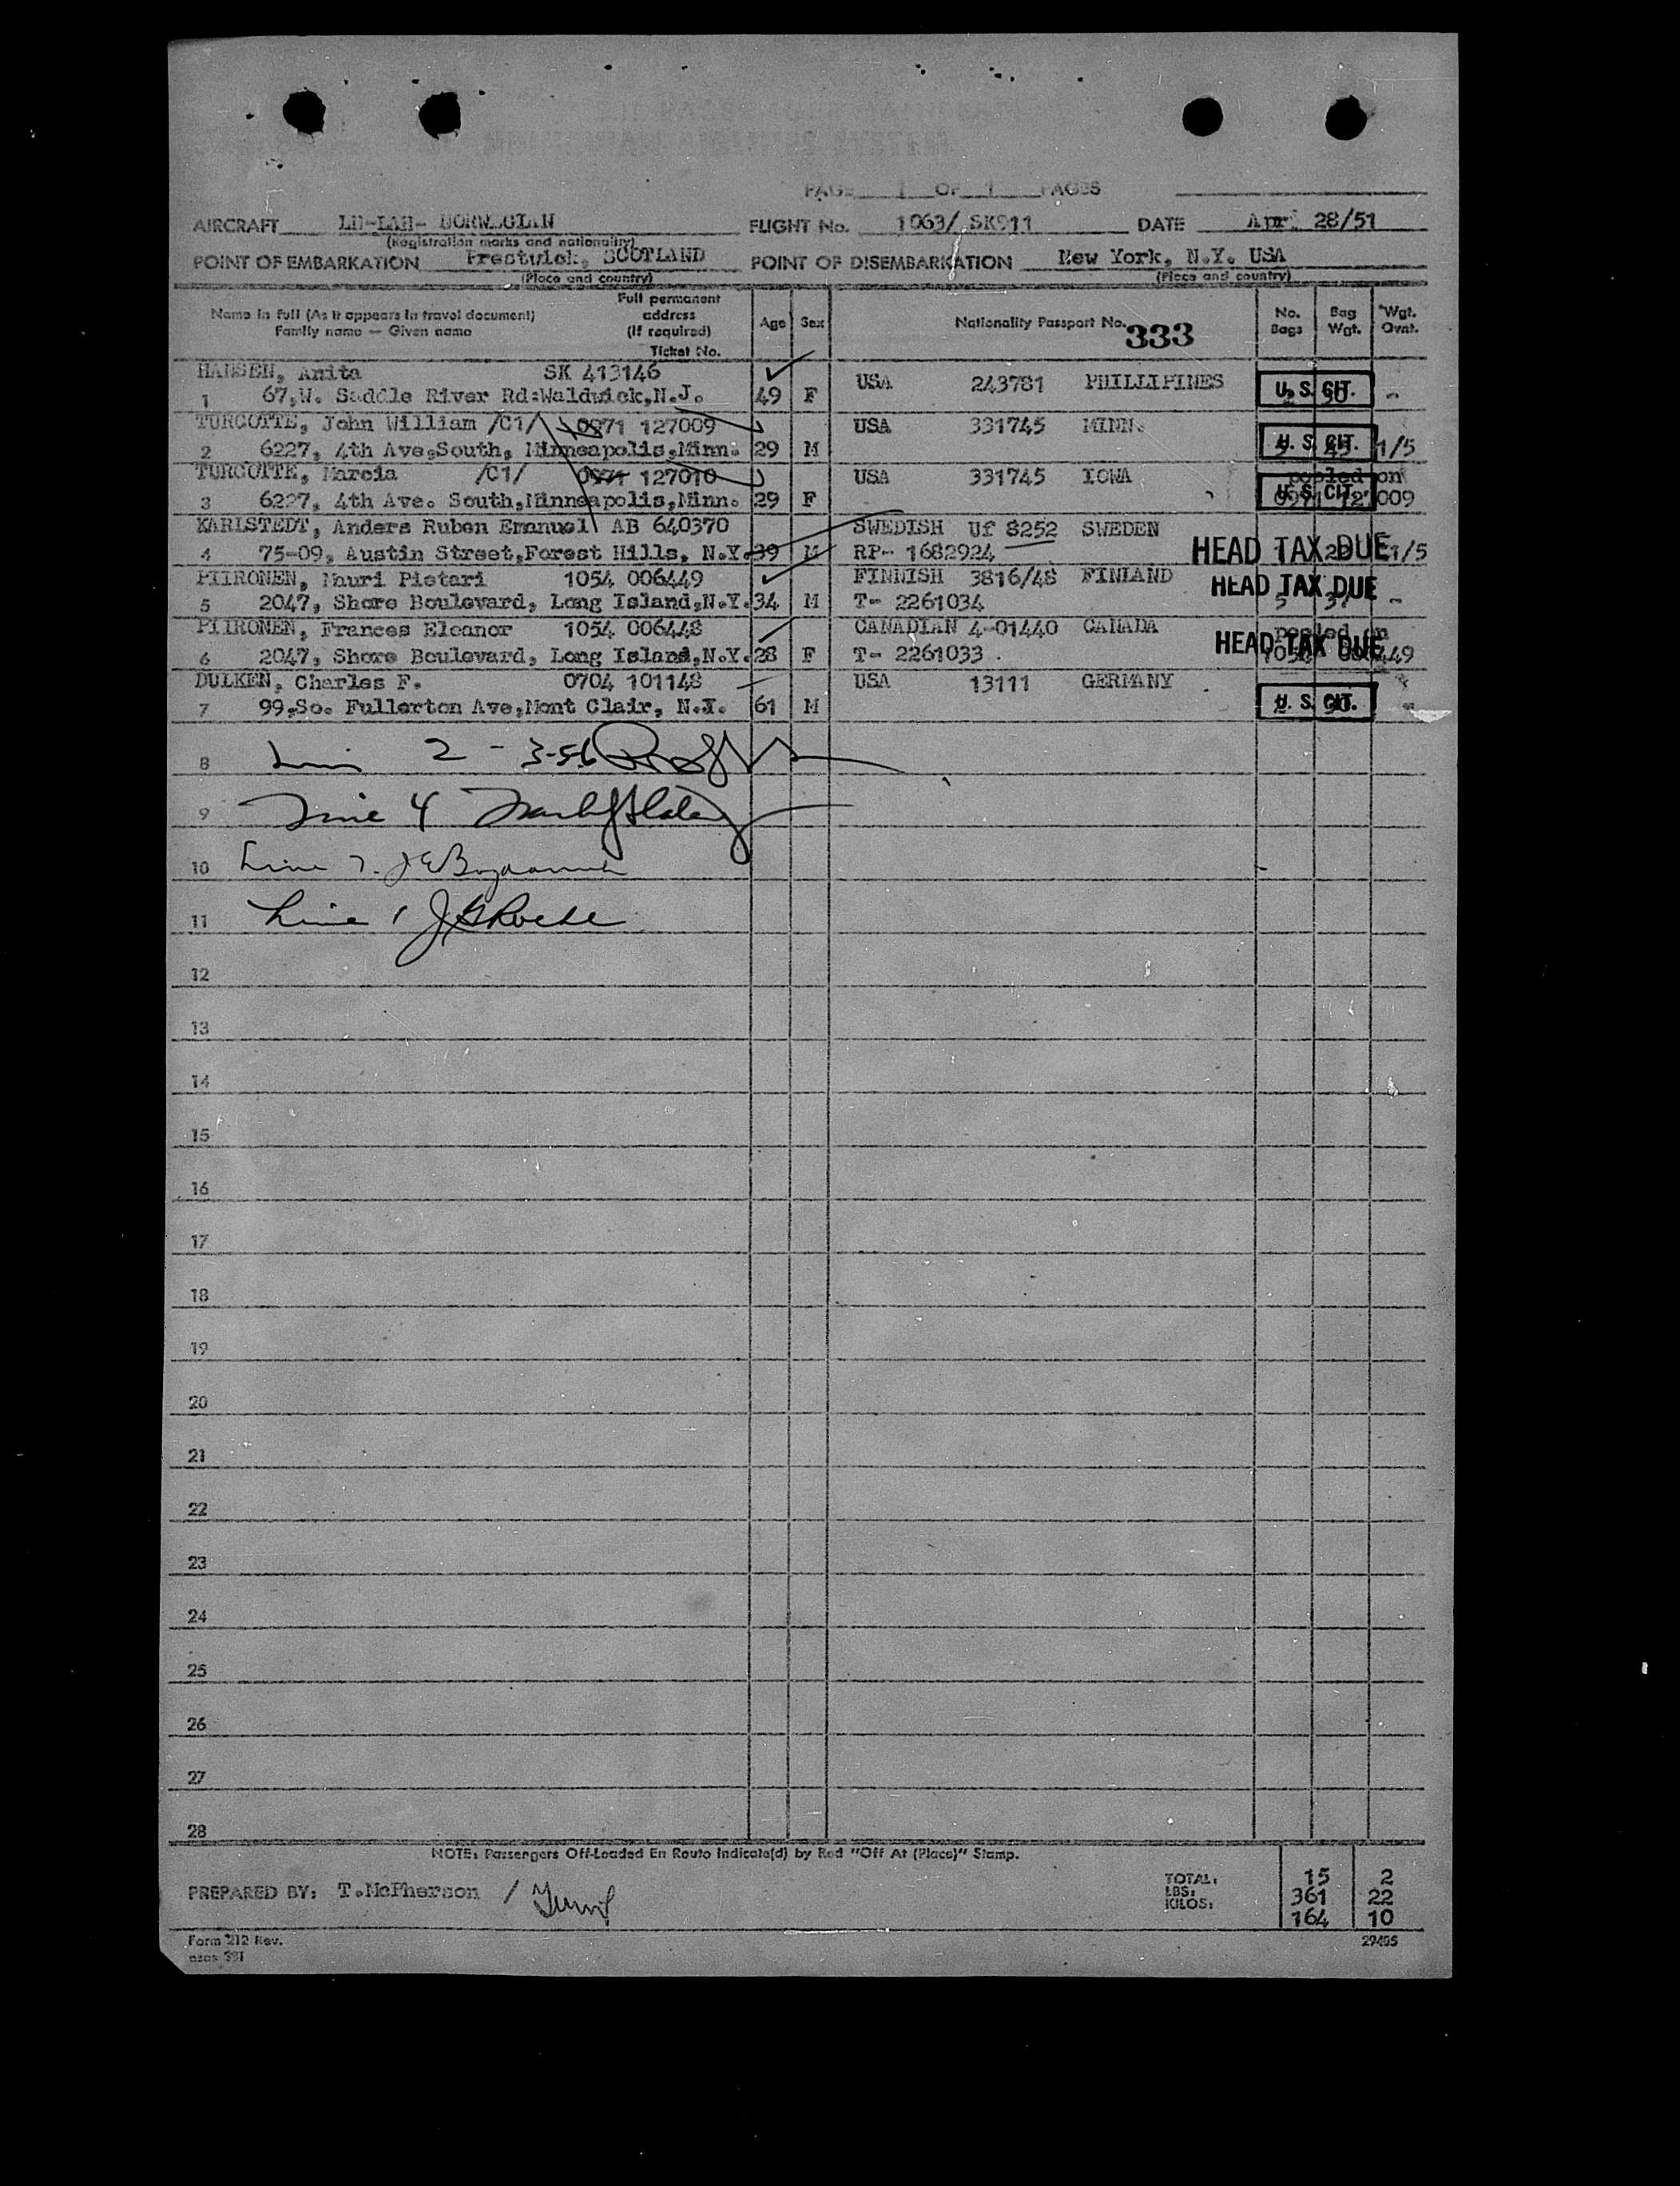 PAGE 1 OF 1 PAGES
AIRCRAFT LN-LAH- NORWEGIAN FLIGHT No. 1063/ SK911 DATE Apr. 28/51
(Registration marks and nationality)
POINT OF EMBARKATION Prestwick, SCOTLAND POINT OF DISEMBARKATION New York, N.Y. USA
(Place and country) (Place and country)
Name in full (As it appears in travel document) Family name — Given name Full permanent address (If required) Ticket No. Age Sex Nationality Passport No. 333 No. Bags Bag Wgt. Wgt. Ovnt.
HANSEN, Anita SK 413146 USA 243781 PHILLIPINES U. S. CIT. -
1 67,W. Saddle River Rd:Waldwick,N.J. 49 F
TURCOTTE, John William /C1/ 0971 127009 USA 331745 MINN. U. S. CIT. 1/5
2 6227, 4th Ave,South, Minneapolis,Minn. 29 M
TURCOTTE, Marcia /C1/ 0971 127010 USA 331745 IOWA pooled on
3 6227, 4th Ave. South,Minneapolis,Minn. 29 F U. S. CIT. 009
KARLSTEDT, Anders Ruben Emanuel AB 640370 SWEDISH Uf 8252 SWEDEN
4 75-09, Austin Street,Forest Hills, N.Y. 39 M RP- 1682924 HEAD TAX DUE 1/5
PIIRONEN, Mauri Pietari 1054 006449 FINNISH 3816/48 FINLAND HEAD TAX DUE
5 2047, Shore Boulevard, Long Island,N.Y. 34 M T- 2261034 5 37 -
PIIRONEN, Frances Eleanor 1054 006448 CANADIAN 4-01440 CANADA pooled on HEAD TAX DUE
6 2047, Shore Boulevard, Long Island,N.Y. 28 F T- 2261033 .
DULKEN, Charles F. 0704 101148 USA 13111 GERMANY
7 99,So. Fullerton Ave,Mont Clair, N.J. 61 M U. S. CIT. -
8 2 - 3-5-6
9 Line 4
10 Line 7.
11 Line 1
12
13
14
15
16
17
18
19
20
21
22
23
24
25
26
27
28
NOTE: Passengers Off-Loaded En Route Indicate(d) by Red "Off At (Place)" Stamp.
PREPARED BY: T.McPherson /
TOTAL: 15 2
LBS: 361 22
KILOS: 164 10
Form 212 Rev. 29405